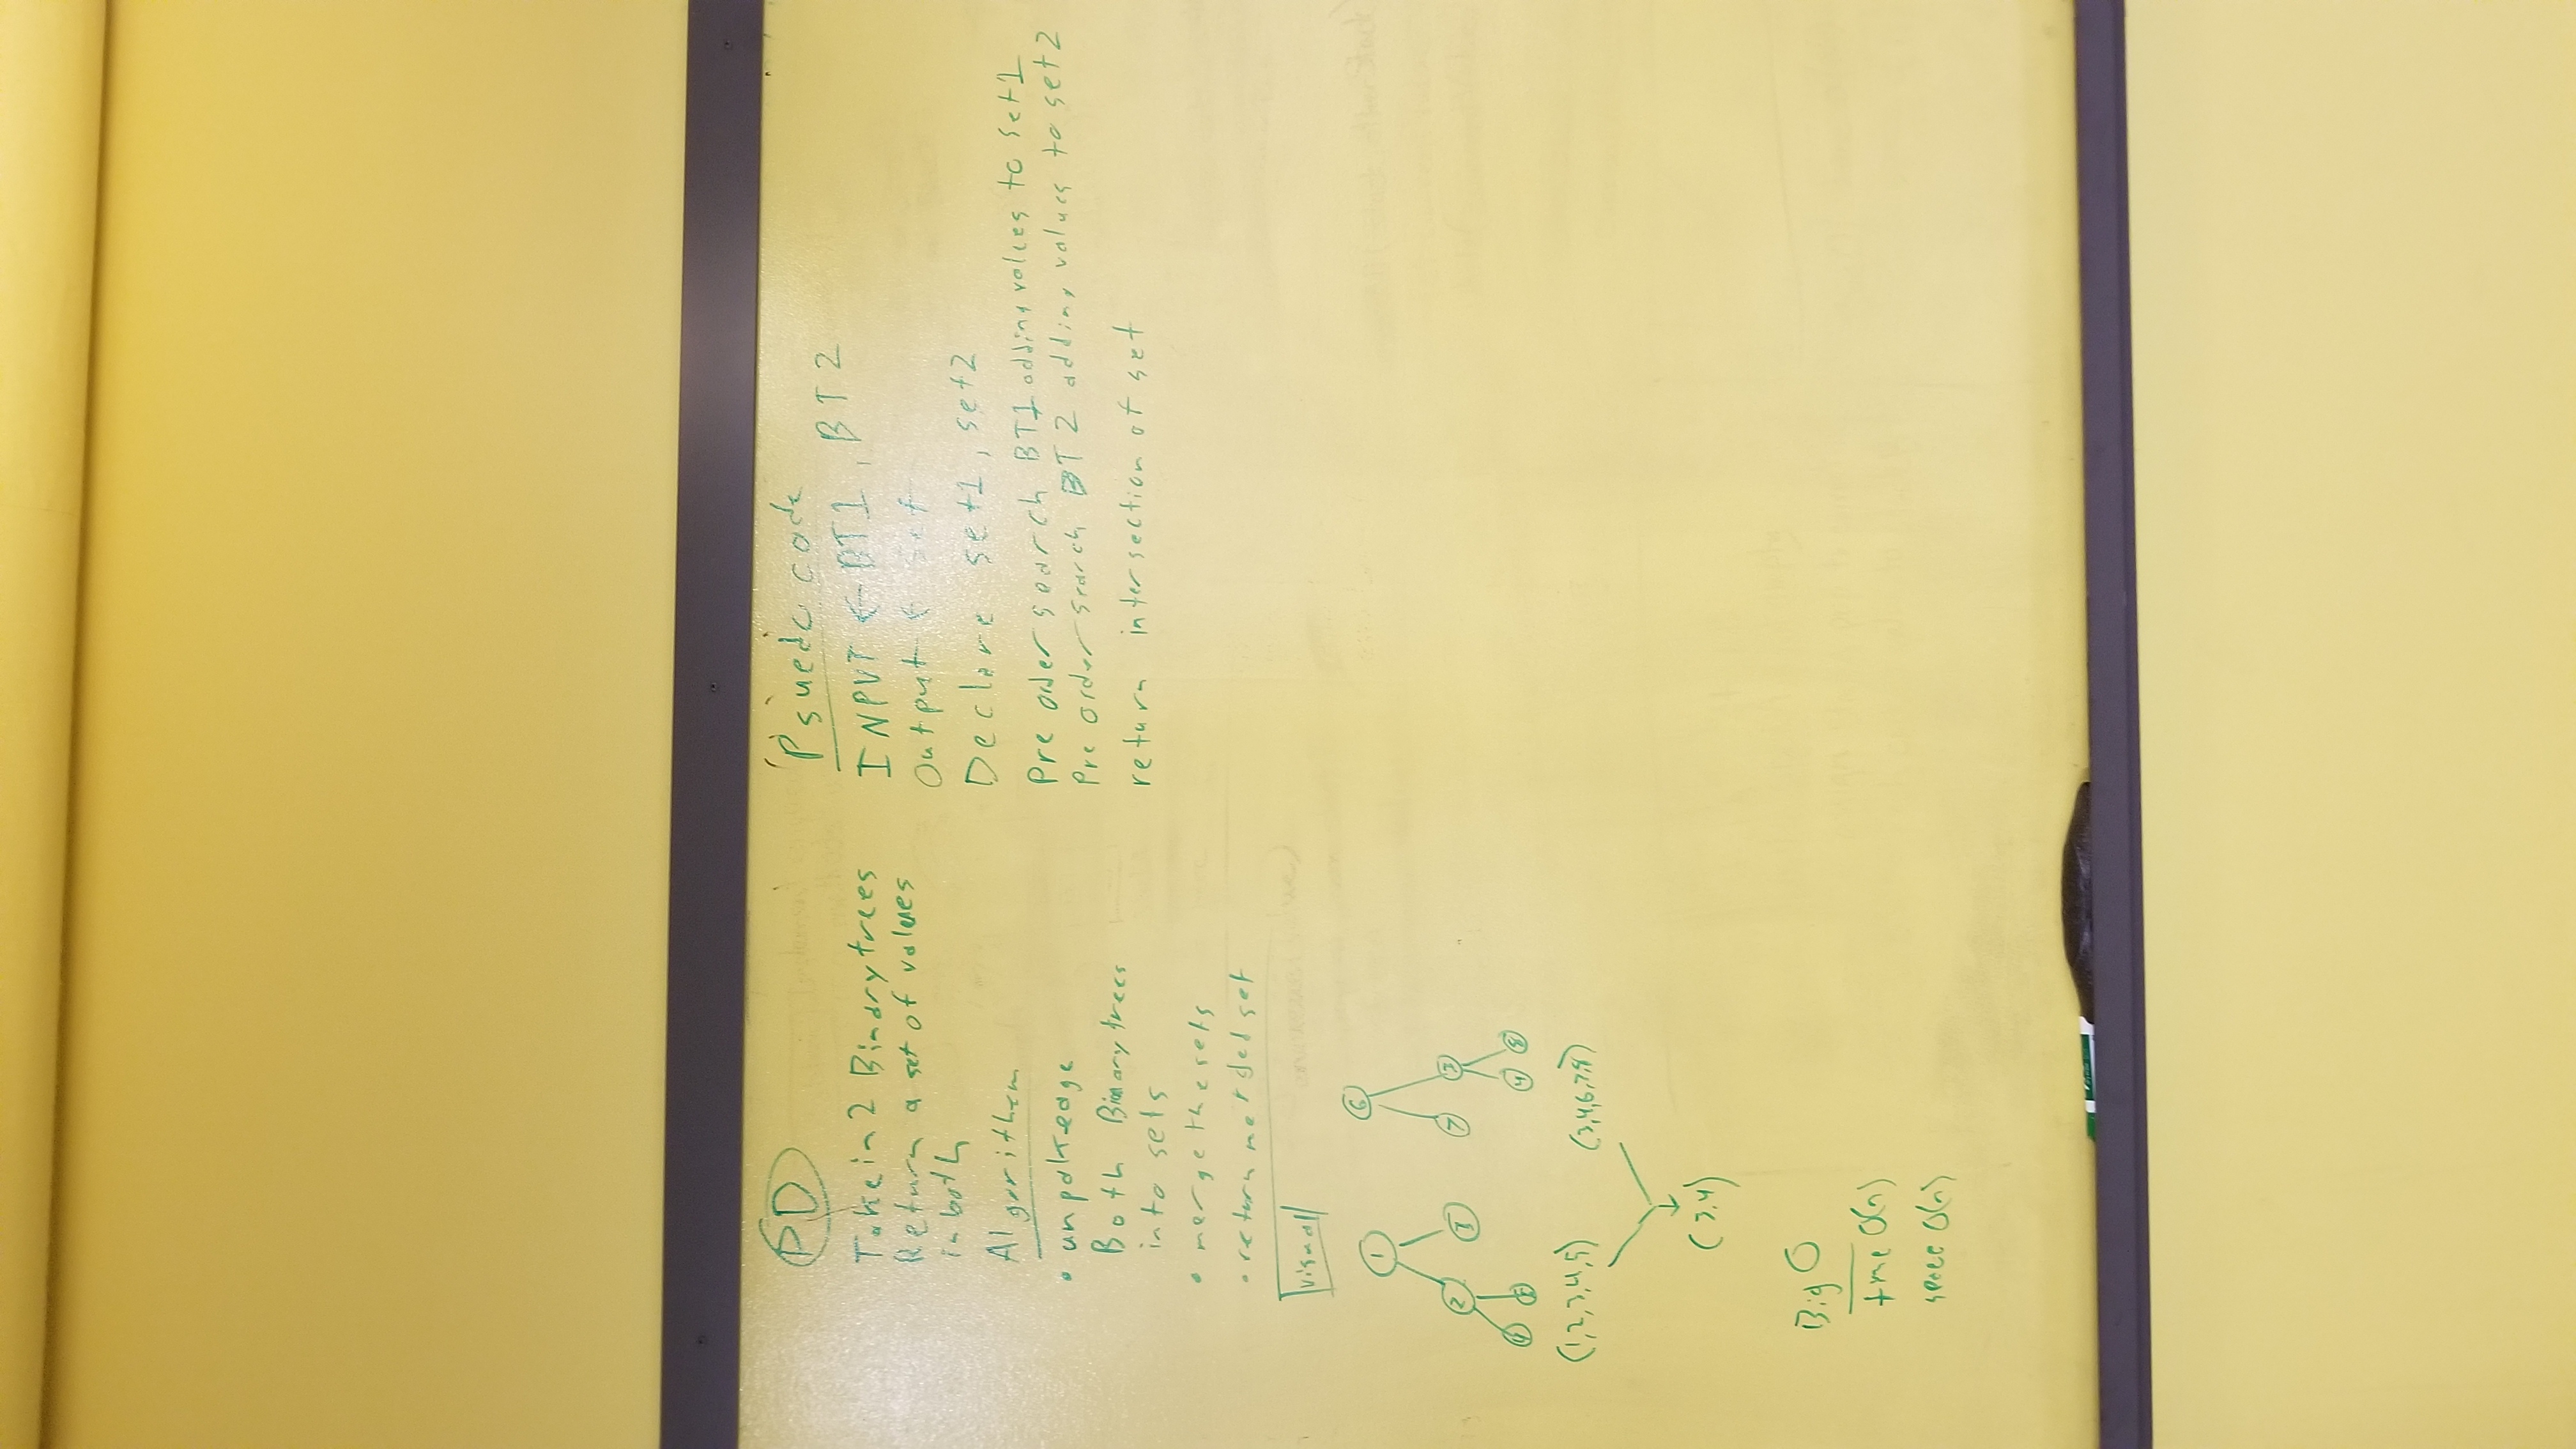 PD
Take in 2 Binary trees
Return a set of values
in both
Algorithem
• unpakeage
Both Binary trees
into sets
• merge the sets
• return merged set
visual
1
2 3
4 5
6
7 3
4 8
(1,2,3,4,5)
(3,4,6,7,8)
(3,4)
Big O
time O(n)
space O(n)
Psuedo code
INPUT ← BT1, BT2
Output ← set
Declare set1, set2
Pre order search BT1 adding values to set1
Pre order search BT2 adding values to set2
return intersection of set